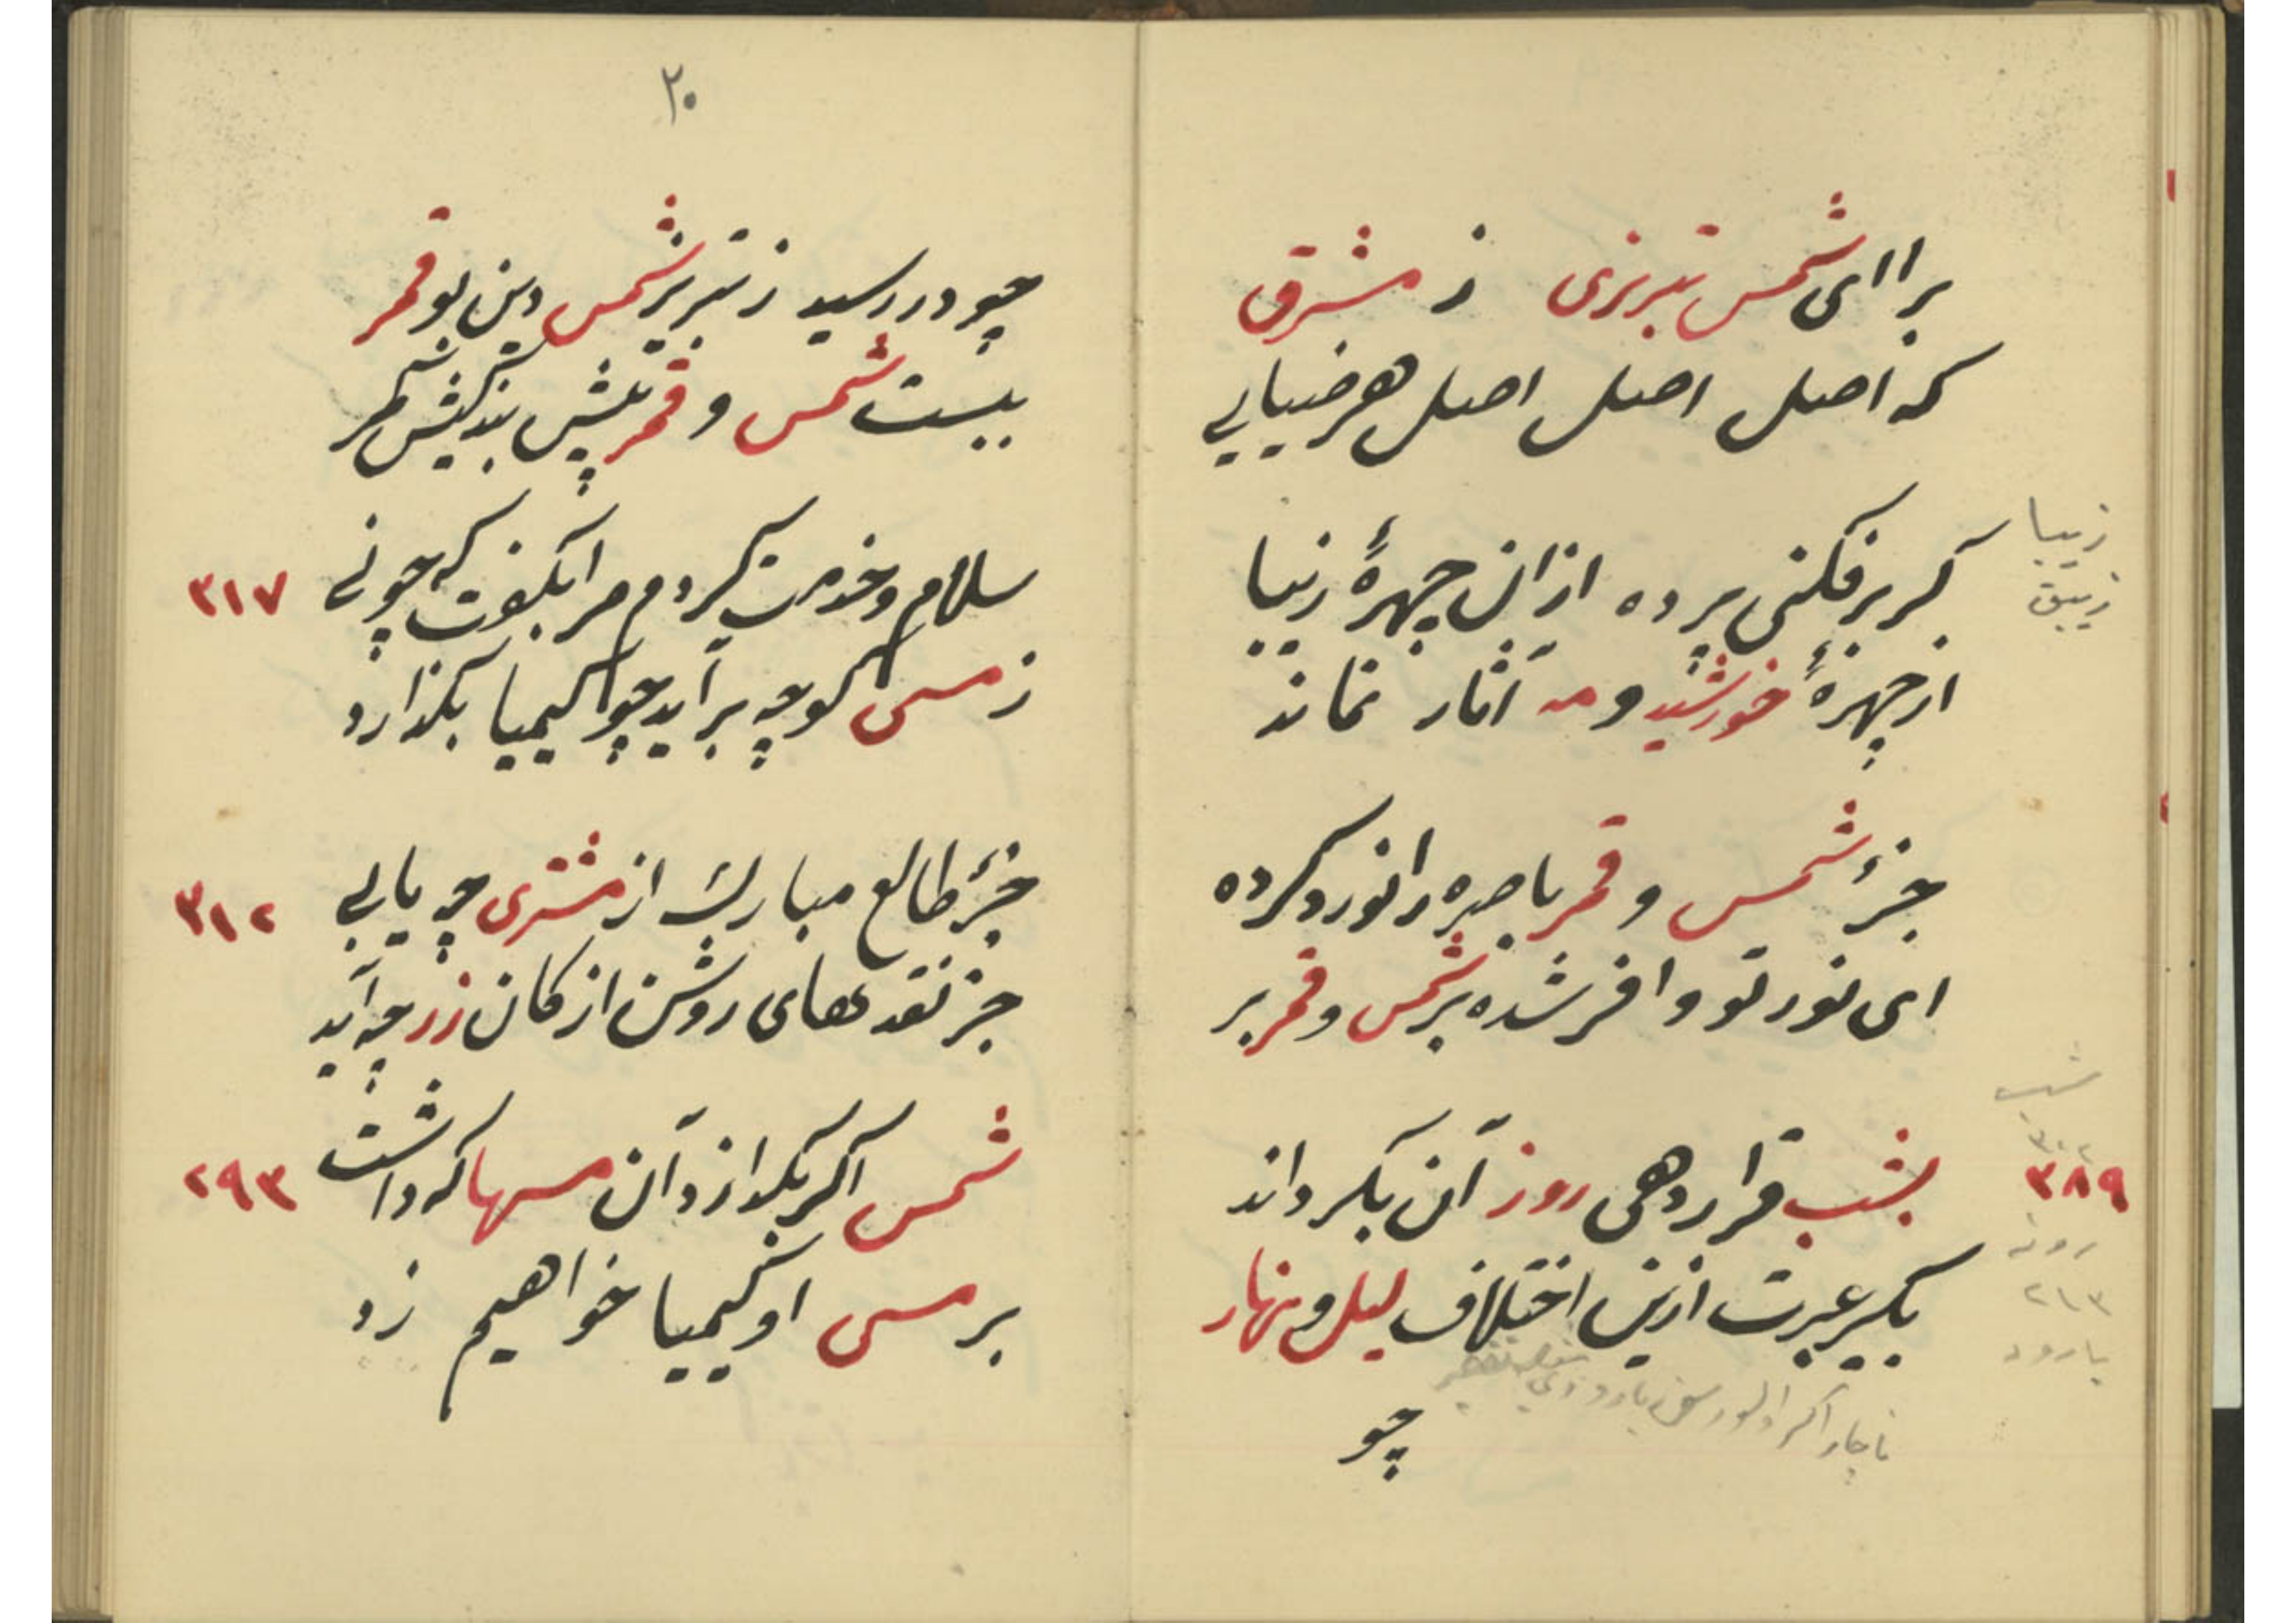 برا ای شمس تبریزی ز مشرق
که اصل اصل اصل هر ضیایی
زیبا
زیبق
گر برفکنی پرده ازان چهرهٔ زیبا
از چهرهٔ خورشید و مه آثار نماند
جزء شمس و قمر باصره را نور و کرده
ای نور تو وافر شده بر شمس و قمر بر
شب
۳۸۹
بشب قرار دهی روز آن بگرداند
بگیر عبرت ازین اختلاف لیل و نهار
۲۱۳
یارود
چو
۲۰
چو در رسید ز تبریز شمس دین بو قمر
ببست شمس و قمر پیش بندگیش کمر
سلام و خدمت کردم مرا بگفت که چونی
۳۱۷
ز مسی گو چه برآید چو کیمیا بگذارد
جزء طالع مبارک از مشتری چه یابی
۳۱۲
جز نقدهای روشن از کان زر چه آید
شمس اگر بگدازد آن مسها که داشت
۲۹۳
بر مسی او کیمیا خواهیم زد